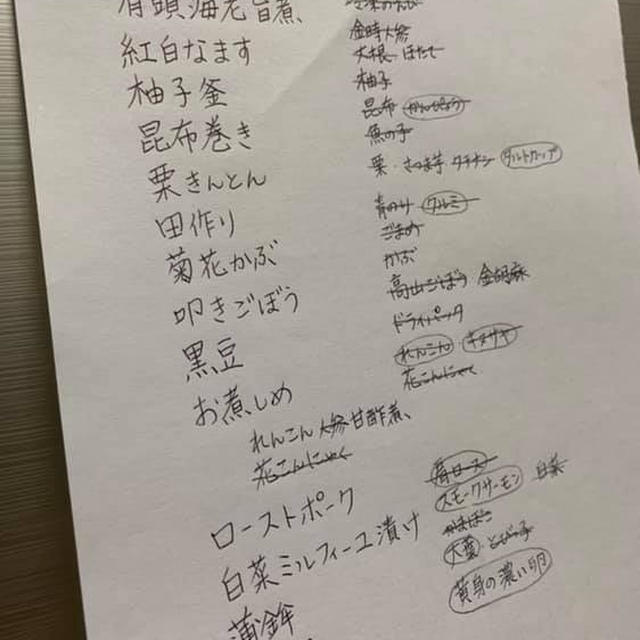 有頭海老旨煮
紅白なます 金時人参
大根 ほたて
柚子釜 柚子
昆布巻き 昆布 かんぴょう
魚の子
栗きんとん 栗・さつま芋 クチナシ タルトカップ
田作り 青のり クルミ
ごまめ
菊花かぶ かぶ
叩きごぼう 高山ごぼう 金胡麻
黒豆 ドライパック
お煮しめ れんこん・キヌサヤ
花こんにゃく
れんこん 人参 甘酢煮、
花こんにゃく
ローストポーク 肩ロース
白菜ミルフィーユ漬け スモークサーモン 白菜
蒲鉾 かまぼこ
大葉 とびっ子
黄身の濃い卵